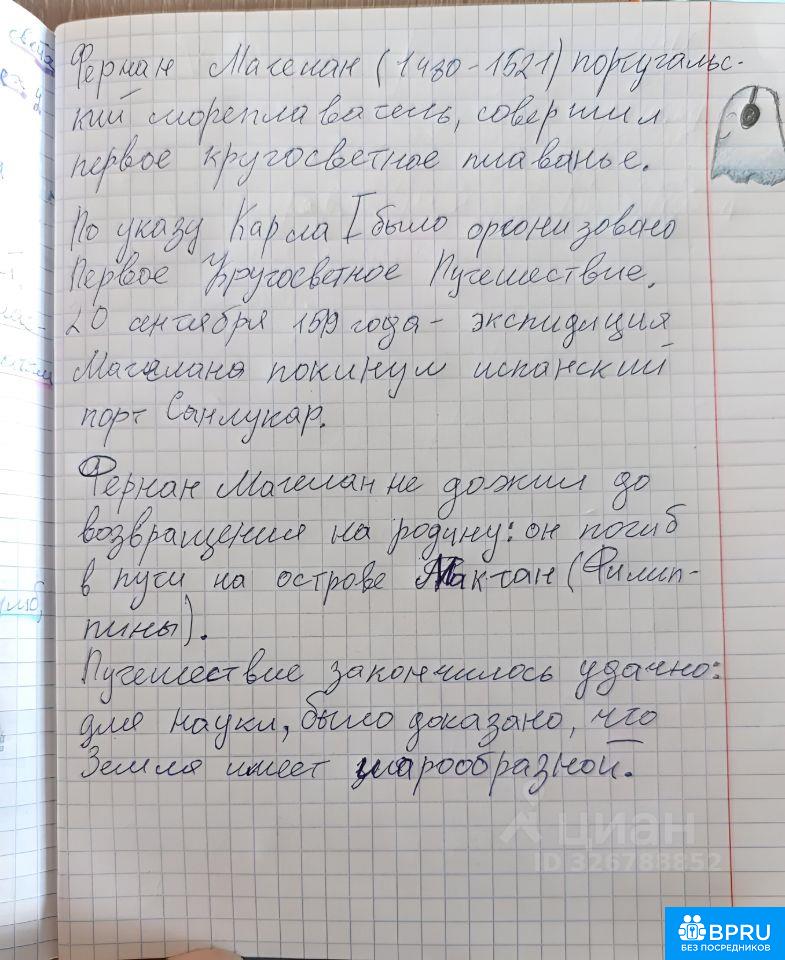 Фернан Магелан (1480-1521) португальс-
кий мореплаватель, совершил
первое кругосветное плаванье.
По указу Карла I было оргонизовано
Первое Кругосветное Путешествие.
20 сентября 159 года - экспидиция
Магелана покинул испанский
порт Санлукар.
Фернан Магелан не дожил до
возвращения на родину: он погиб
в пути на острове Мактан (Филип-
пины).
Путешествие закончилось удачно:
для науки, было доказано, что
Земля имеет шарообразной.
циан
ID 326788852
BPRU
БЕЗ ПОСРЕДНИКОВ